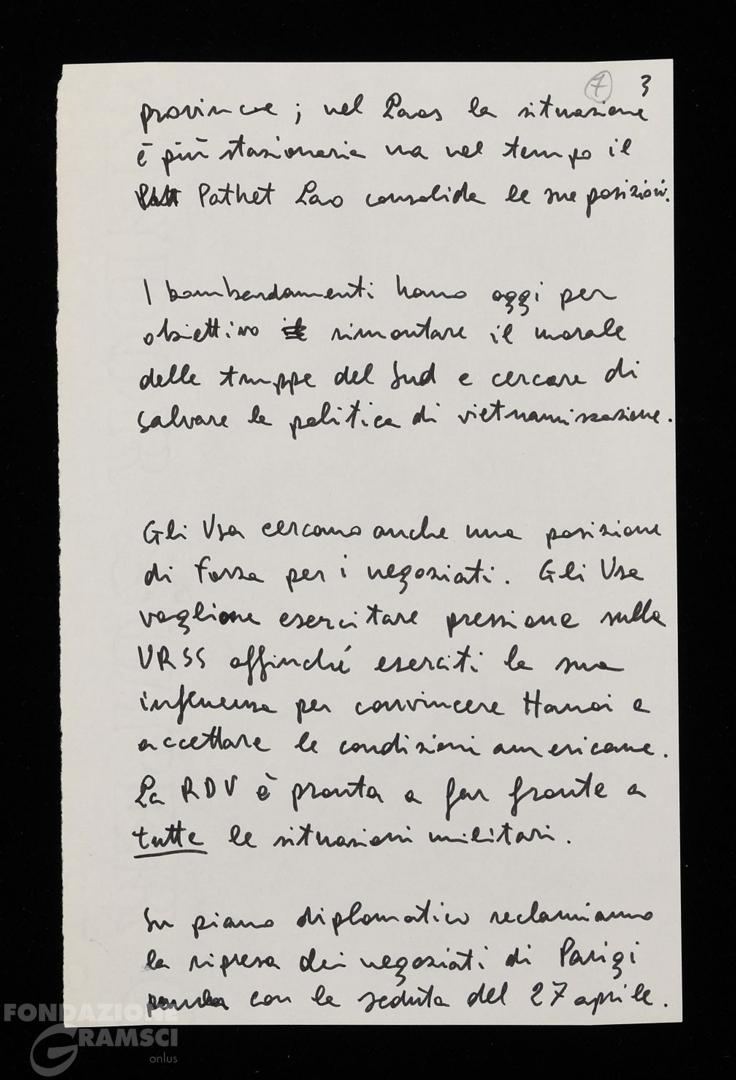 7 3
provincie; nel Laos la situazione
è più stazionaria ma nel tempo il
Pathet Lao consolida le sue posizioni.
I bombardamenti hanno oggi per
obiettivo rimontare il morale
delle truppe del Sud e cercare di
salvare la politica di vietnamizzazione.
Gli Usa cercano anche una posizione
di forza per i negoziati. Gli Usa
vogliono esercitare pressione sulla
URSS affinché eserciti la sua
influenza per convincere Hanoi a
accettare le condizioni americane.
La RDV è pronta a far fronte a
tutte le situazioni militari.
Su piano diplomatico reclamiamo
la ripresa dei negoziati di Parigi
con la seduta del 27 aprile.
FONDAZIONE
GRAMSCI
onlus